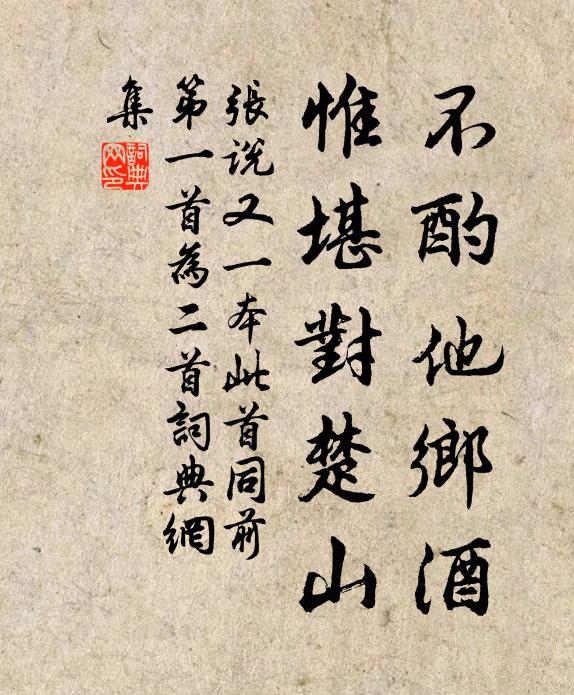 不酌他鄉酒
惟堪對楚山
張説又一本此首同前
第一首為二首詞典網
集
詞典網印